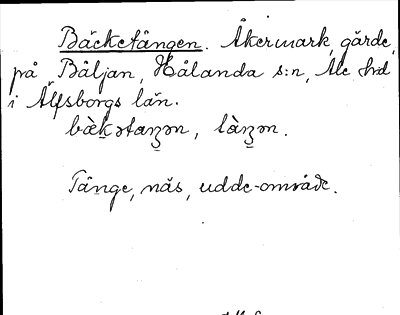 Bäcketången. Åkermark, gärde,
på Båljan, Hålanda s:n, Ale hd
i Älfsborgs län.
bæ̀kətaŋən, làŋən.
Tånge, näs, udde-område.